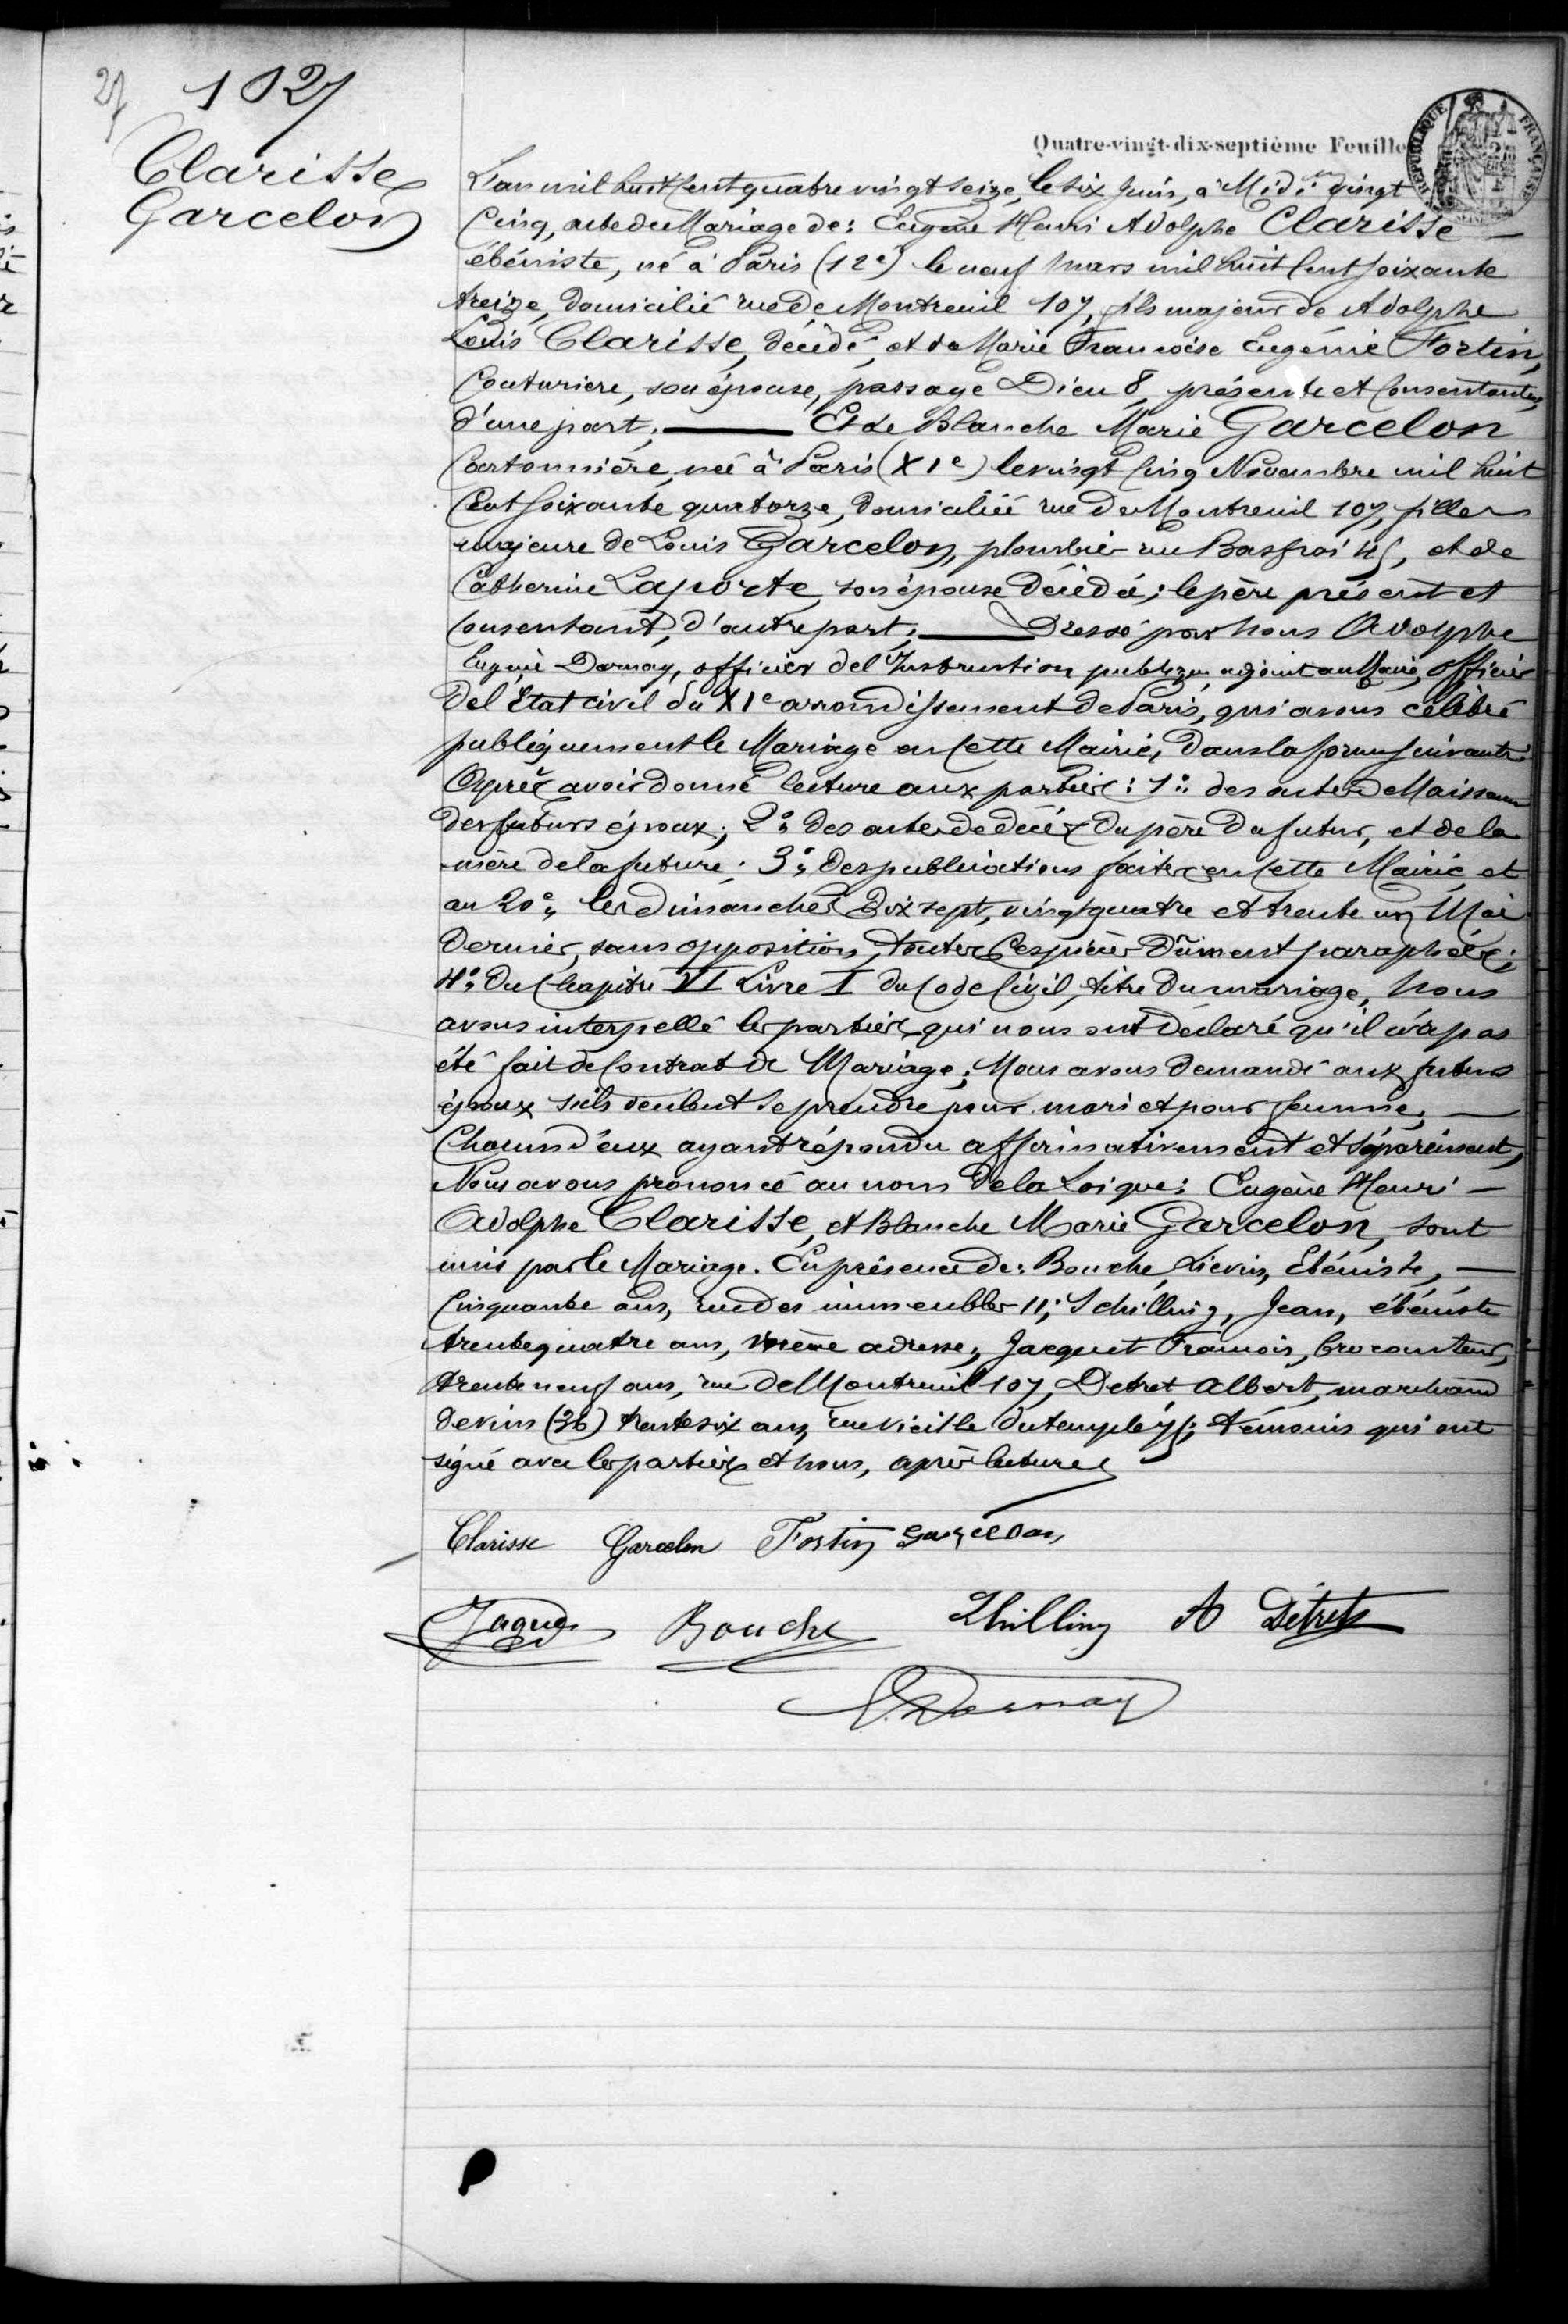 27 1027
Clarisse
Garcelon
Quatre-vingt-dix-septième Feuille
RÉPUBLIQUE FRANÇAISE
L'an mil huit cent quatre vingt seize, le six Juin, à Midi vingt
Cinq, acte de Mariage de : Eugène Henri Adolphe Clarisse —
ébéniste, né à Paris (12e) le neuf Mars mil huit cent soixante
treize, domicilié rue de Montreuil 107, fils majeur de Adolphe
Louis Clarisse, décédé, et de Marie Françoise Eugénie Fortin,
Couturière, son épouse, passage Dieu 8, présente et consentante,
d'une part ; — Et de Blanche Marie Garcelon
Cartonnière, née à Paris (XIe) le vingt cinq Novembre mil huit
Cent soixante quatorze, domiciliée rue de Montreuil 107, fille
majeure de Louis Garcelon, plombier rue Basfroi 45, et de
Catherine Laporte, son épouse décédée ; le père présent et
consentant, d'autre part ; — Dressé par Nous Adolphe
Eugène Darnay, officier de l'Instruction publique, adjoint au Maire, officier
de l'État civil du XIe arrondissement de Paris, qui avons célébré
publiquement le Mariage en cette Mairie, dans la forme suivante
Après avoir donné lecture aux parties : 1° des actes de Naissance
des futurs époux ; 2° des actes de décès du père du futur, et de la
mère de la future ; 3° des publications faites en cette Mairie et
au 20e, les dimanches dix sept, vingt quatre et trente un Mai
dernier, sans opposition, toutes ces pièces dûment paraphées ;
4° du Chapitre VI Livre I du Code Civil, titre du mariage, Nous
avons interpellé les parties, qui nous ont déclaré qu'il n'a pas
été fait de Contrat de Mariage ; Nous avons demandé aux futurs
époux s'ils veulent se prendre pour mari et pour femme, —
Chacun d'eux ayant répondu affirmativement et séparément,
Nous avons prononcé au nom de la Loi que : Eugène Henri —
Adolphe Clarisse, et Blanche Marie Garcelon, sont
unis par le Mariage. En présence de : Bouche, Liévin, Ebéniste, —
Cinquante ans, rue des immeubles 11 ; Schilling, Jean, ébéniste
trente quatre ans, même adresse ; Jacquet François, brocanteur,
trente neuf ans, rue de Montreuil 107, Detret Albert, marchand
de vins (36) trente six ans, rue Vieille du temple 75 ; témoins qui ont
signé avec les parties et nous, après lecture
Clarisse Garcelon Fortin Garcelon
Bouche A Détret